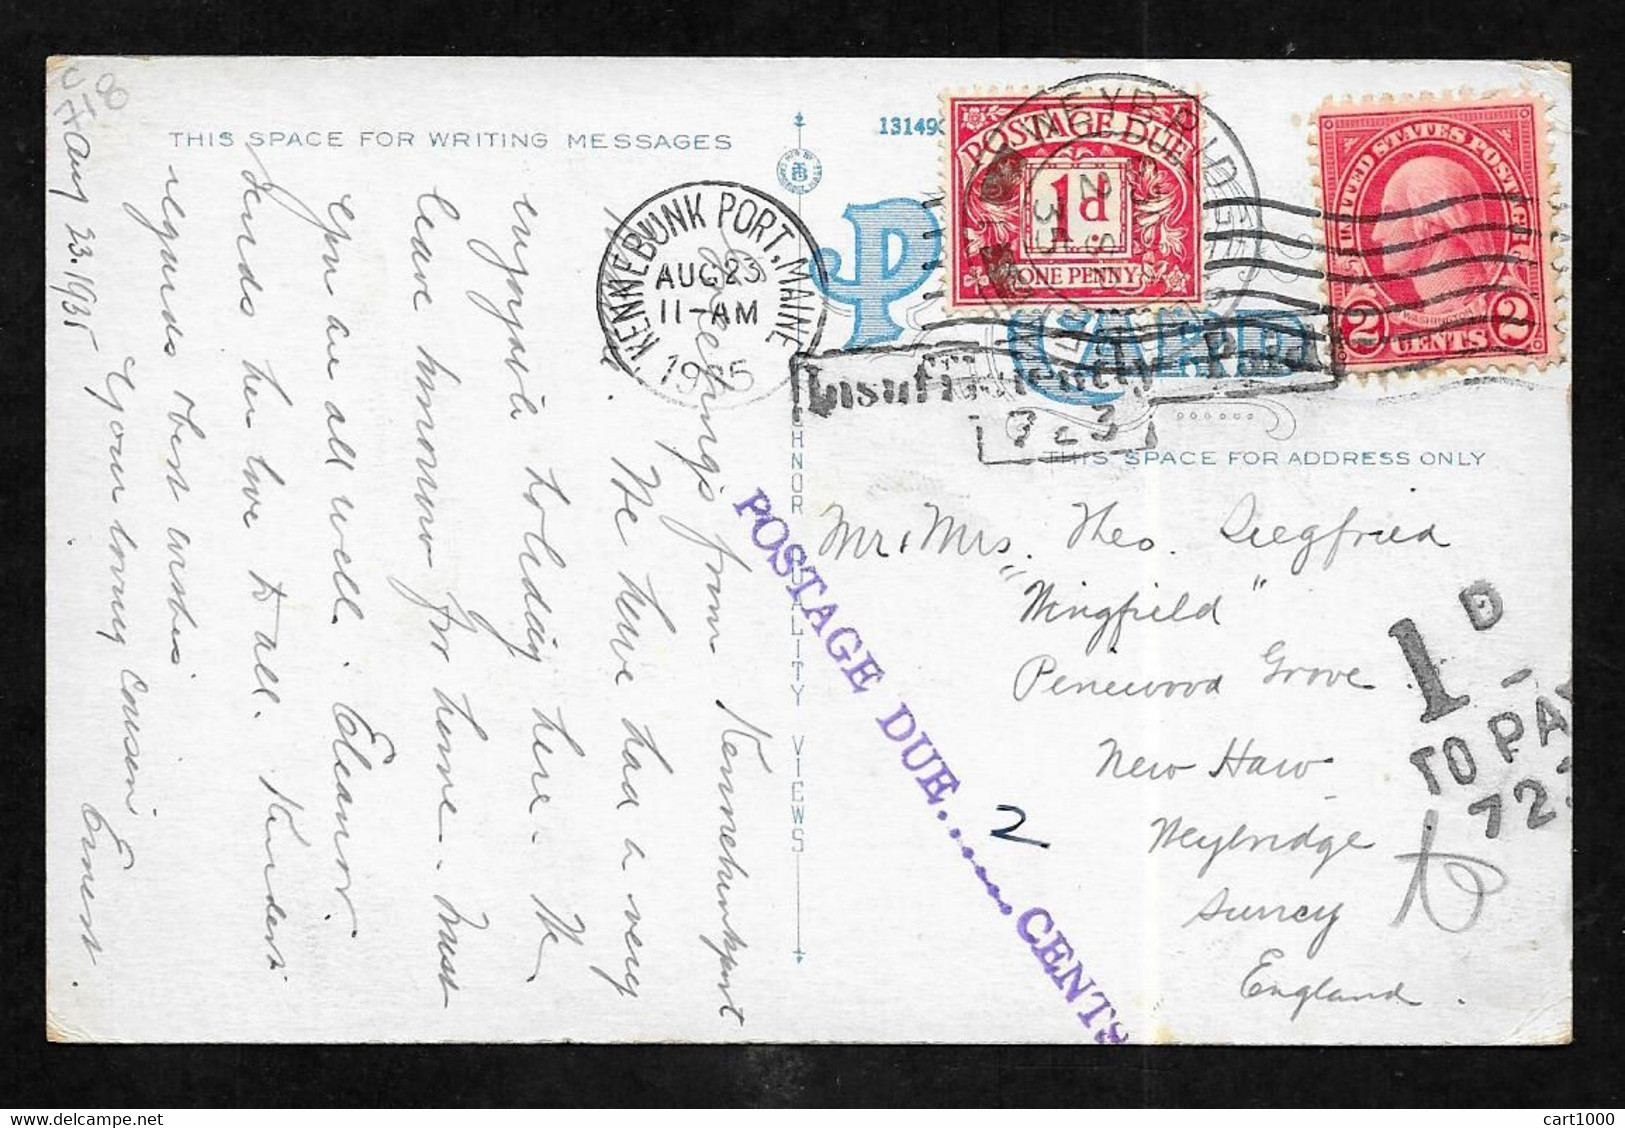 THIS SPACE FOR WRITING MESSAGES
Aug 23. 1935
Greetings from Kennebunkport
We have had a very
enjoyable holiday here. We
leave tomorrow for home. Must
you are all well. Eleanor
sends her love to all. Kindest
regards & best wishes
Your loving cousin
Ernest.
KENNEBUNK PORT, MAINE
AUG 23
11-AM
1935
13149
POST CARD
POSTAGE DUE
1d.
ONE PENNY
WEYBRIDGE
UNITED STATES POSTAGE
WASHINGTON
2 CENTS 2
Insufficiently Paid
723
THIS SPACE FOR ADDRESS ONLY
QUALITY VIEWS
POSTAGE DUE..........CENTS
2
Mr. & Mrs. Theo. Siegfried
"Wingfield"
Pinewood Grove
New Haw
Weybridge
Surrey
England.
1D
TO PAY
723
cart1000